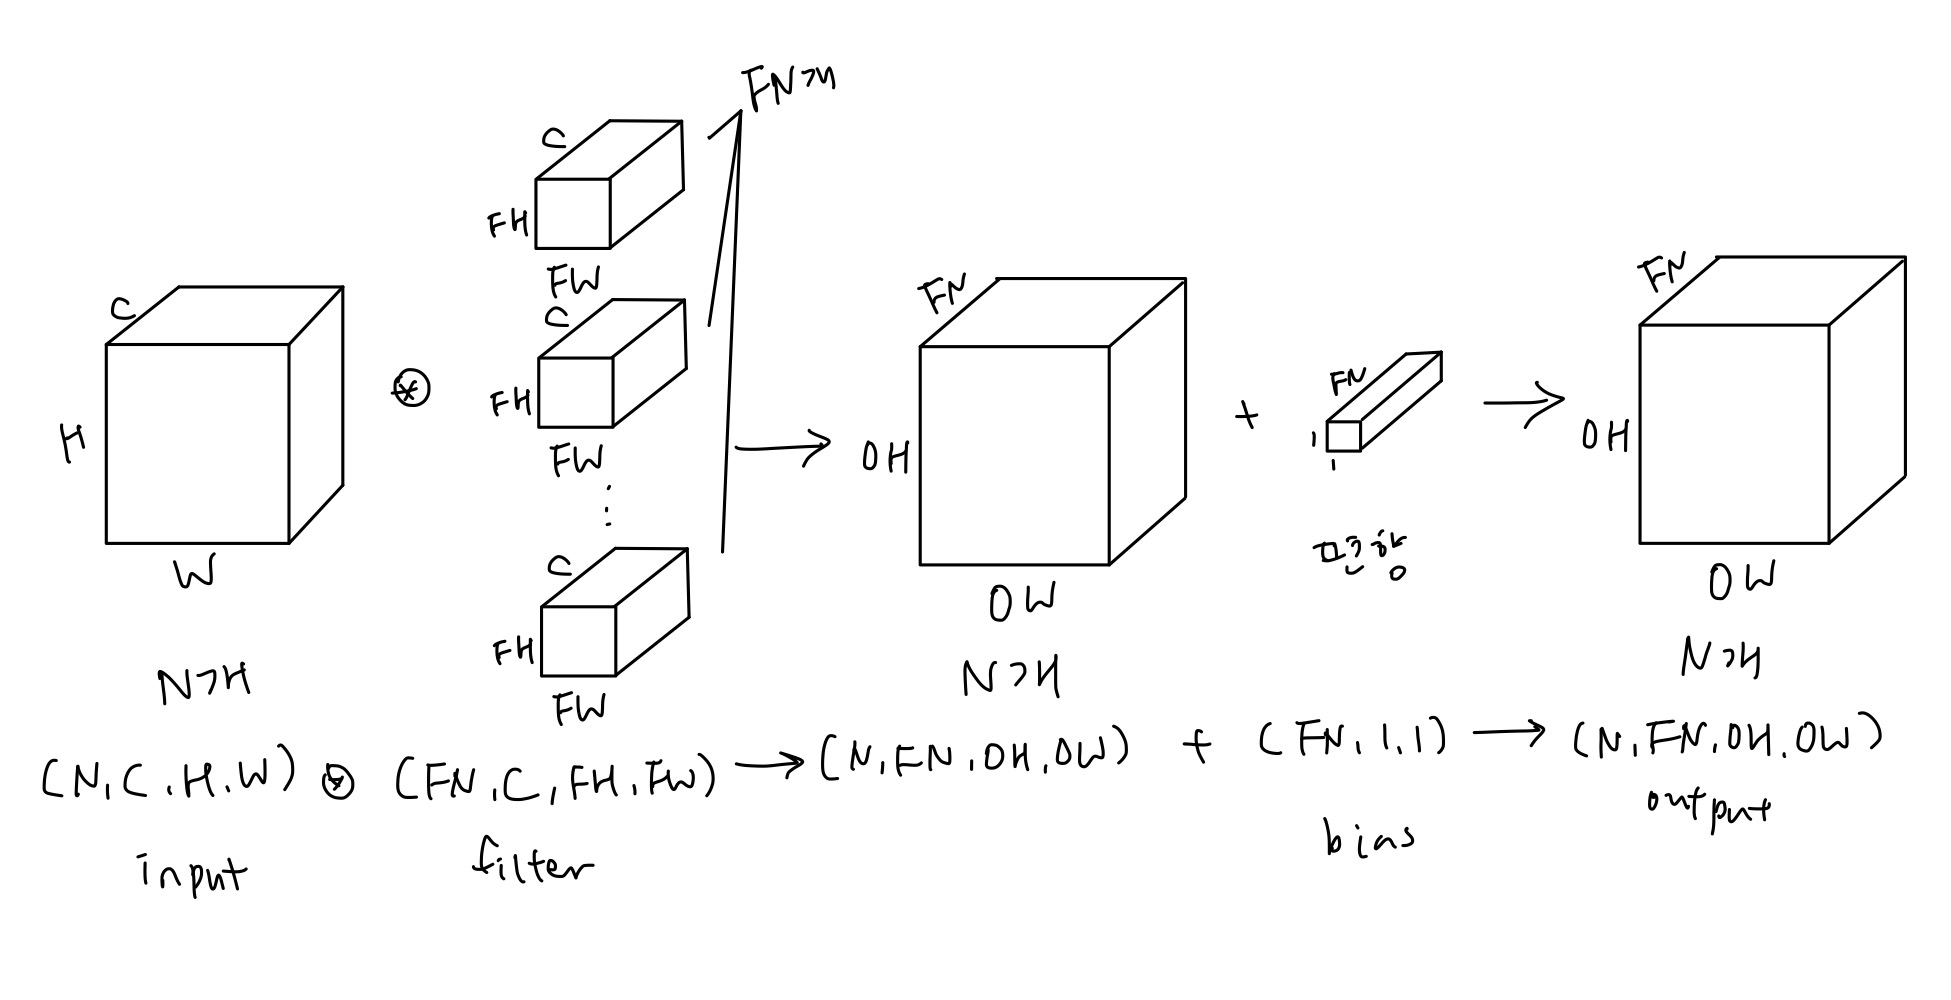 FN개
C
FH
FW
C
FH
FW
⋮
C
FH
FW
C
H
W
N개
⊛
→
FN
OH
OW
N개
+
FN
1
1
편향
→
FN
OH
OW
N개
(N, C, H, W) ⊛ (FN, C, FH, FW) → (N, FN, OH, OW) + (FN, 1, 1) → (N, FN, OH, OW)
input filter bias output